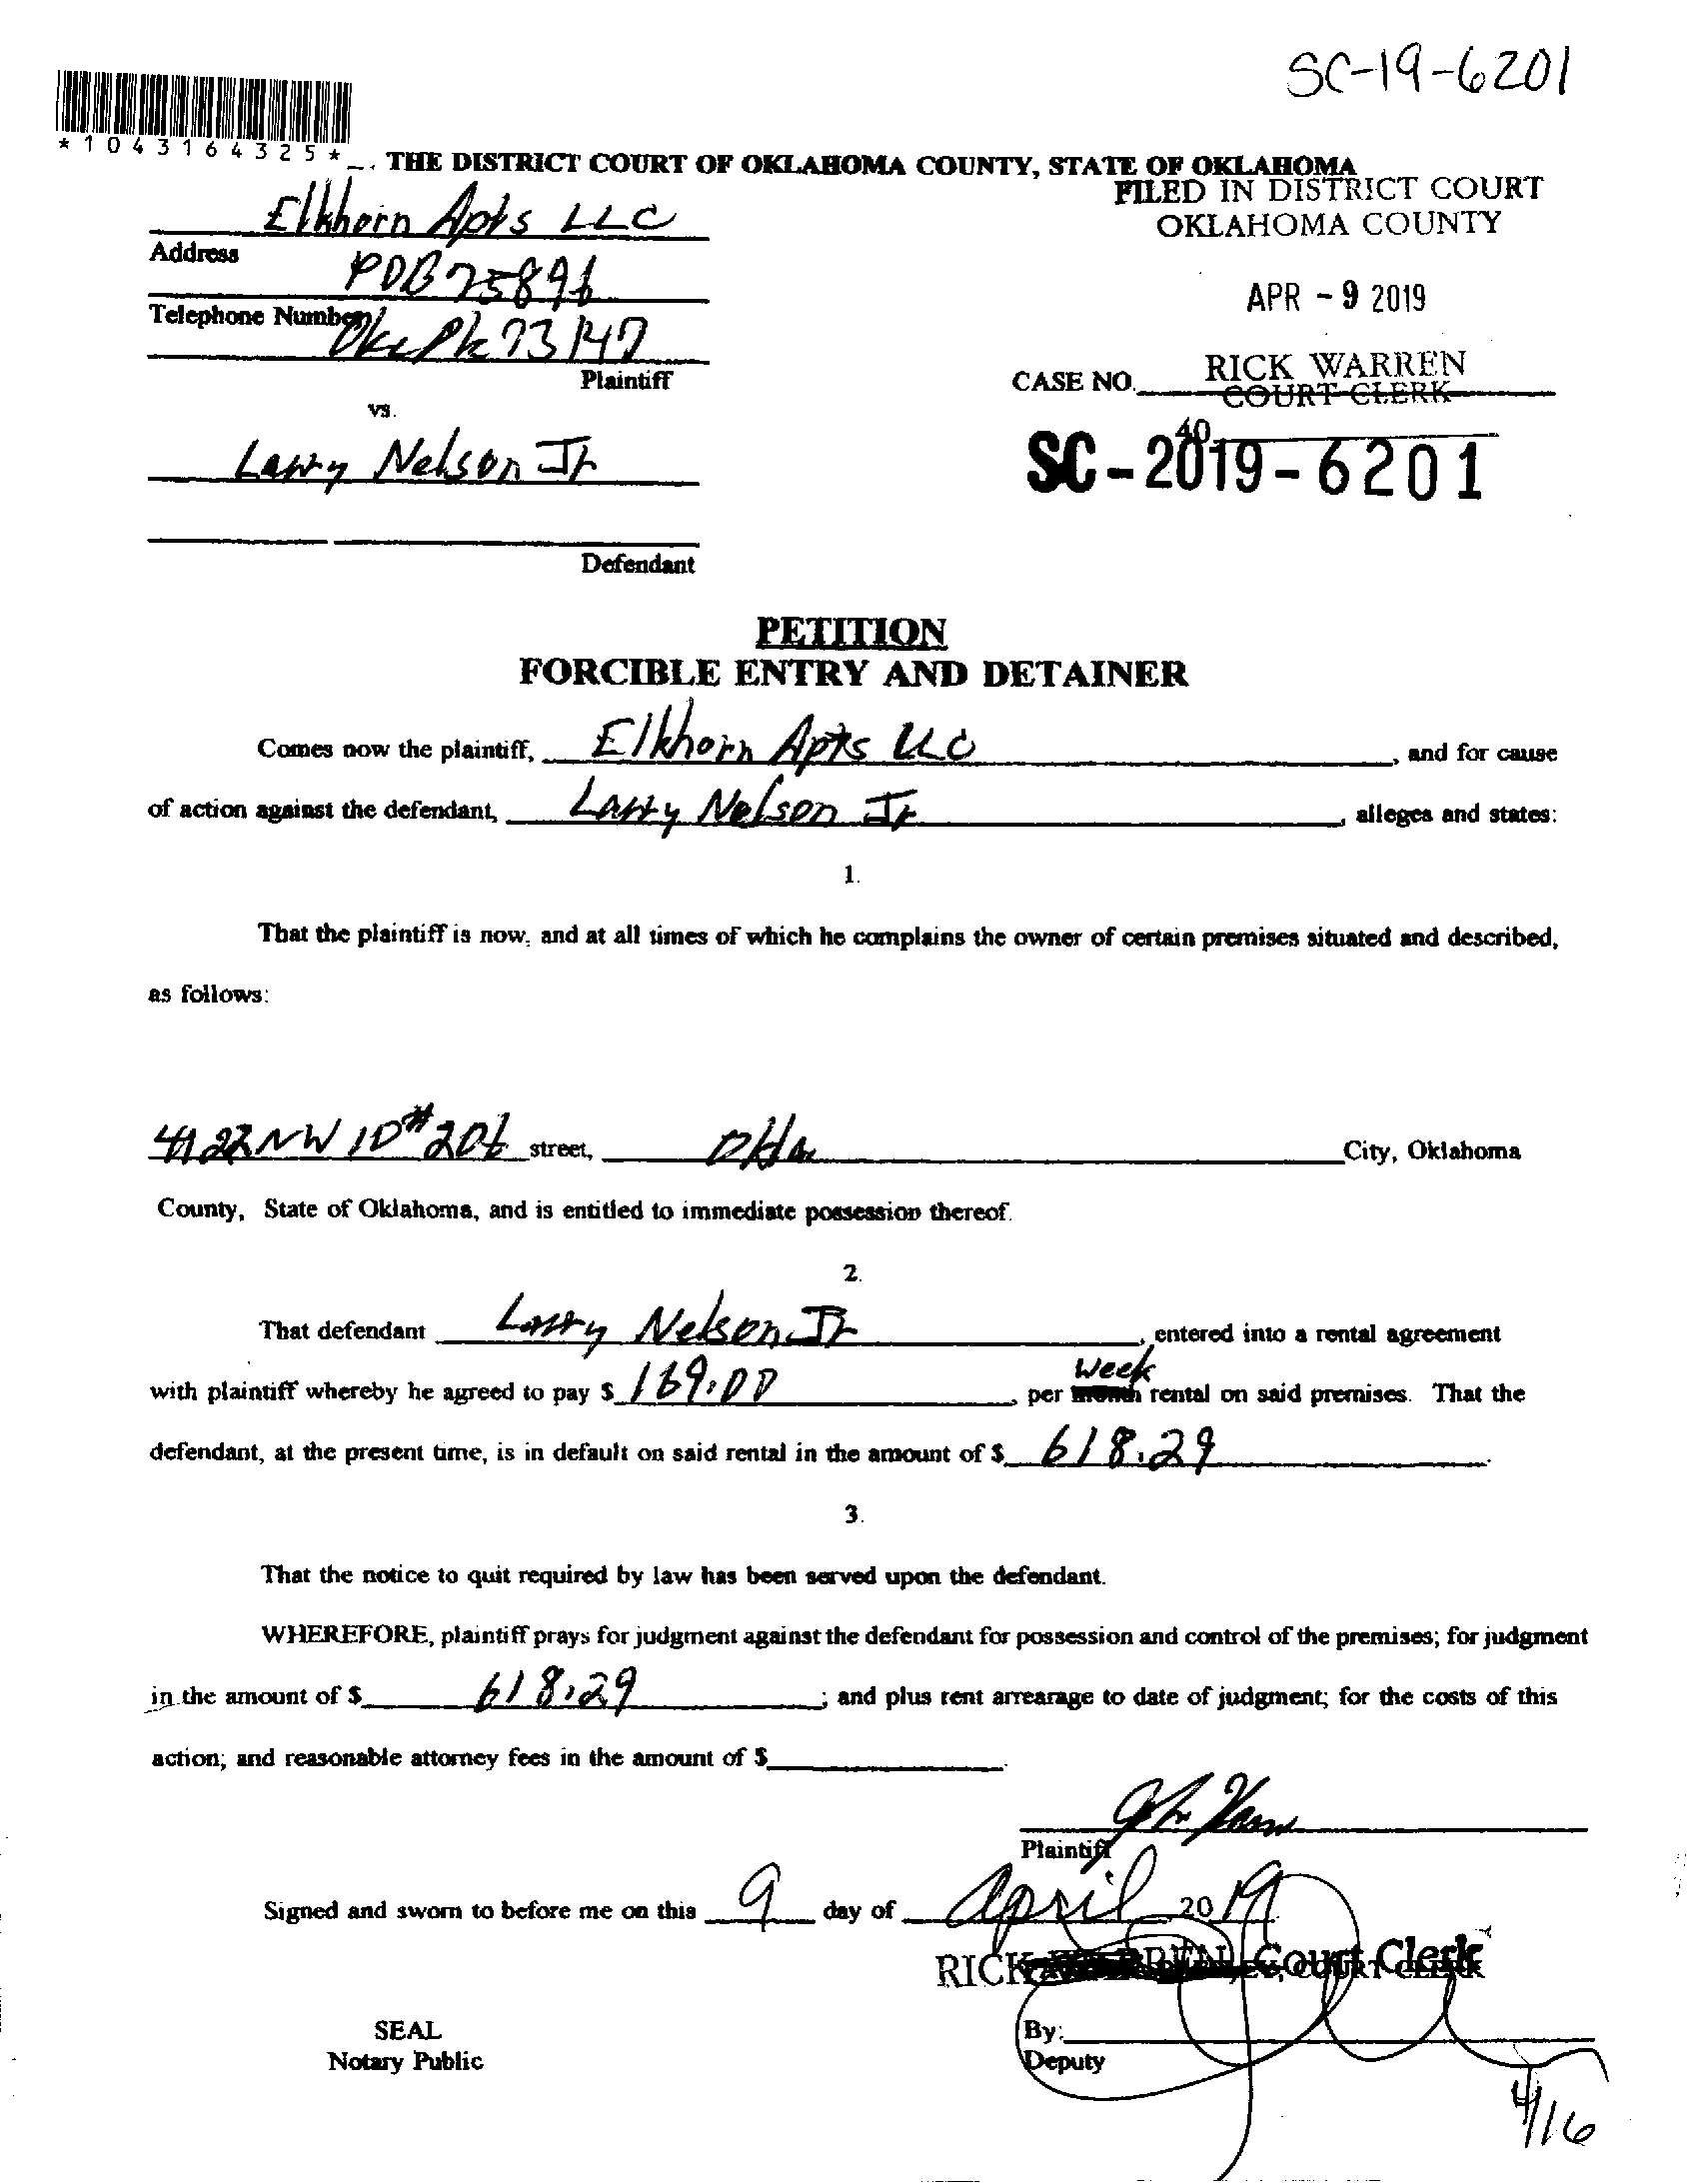 SC-19-6201
*1043164325*
THE DISTRICT COURT OF OKLAHOMA COUNTY, STATE OF OKLAHOMA
FILED IN DISTRICT COURT
OKLAHOMA COUNTY
Elkhorn Apts LLC
Address
POB 75896
APR - 9 2019
Telephone Number
Okc Ok 73147
Plaintiff
RICK WARREN
CASE NO.
COURT CLERK
vs.
40
SC-2019-6201
Larry Nelson Jr
Defendant
PETITION
FORCIBLE ENTRY AND DETAINER
Comes now the plaintiff, Elkhorn Apts LLC, and for cause
of action against the defendant, Larry Nelson Jr, alleges and states:
1.
That the plaintiff is now, and at all times of which he complains the owner of certain premises situated and described,
as follows:
4122 NW 10 #206 street, Okla City, Oklahoma
County, State of Oklahoma, and is entitled to immediate possession thereof.
2.
That defendant Larry Nelson Jr, entered into a rental agreement
week
with plaintiff whereby he agreed to pay $ 169.00, per month rental on said premises. That the
defendant, at the present time, is in default on said rental in the amount of $ 618.29.
3.
That the notice to quit required by law has been served upon the defendant.
WHEREFORE, plaintiff prays for judgment against the defendant for possession and control of the premises; for judgment
in the amount of $ 618.29; and plus rent arrearage to date of judgment; for the costs of this
action; and reasonable attorney fees in the amount of $
Plaintiff
Signed and sworn to before me on this 9 day of April 2019
RICK WARREN, Court Clerk
SEAL
Notary Public
By:
Deputy
4/16